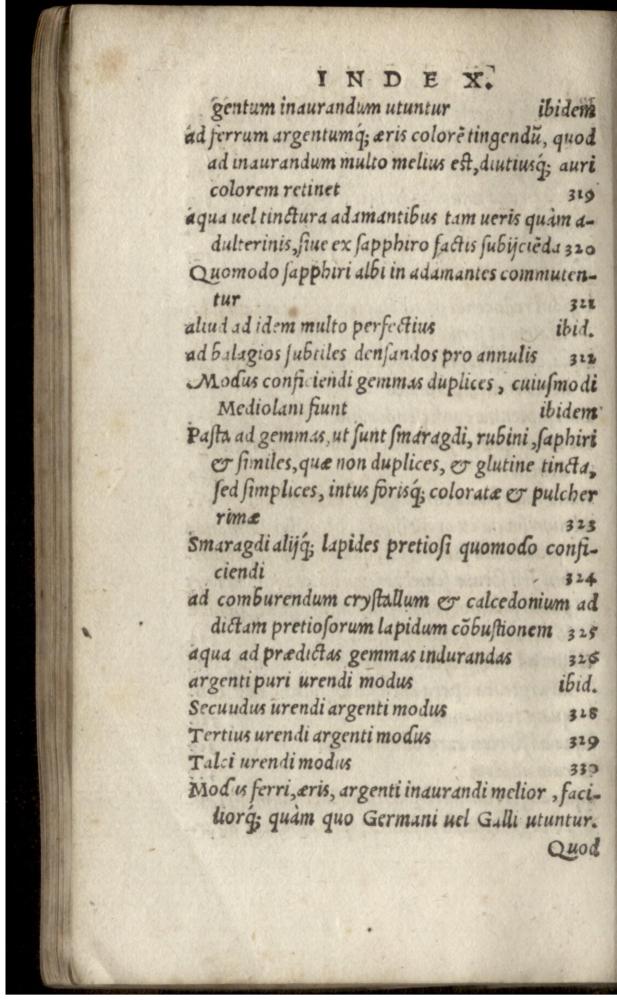 INDEX.
gentum inaurandum utuntur ibidem
ad ferrum argentumq́; æris colorē tingendũ, quod
ad inaurandum multo melius est, diutiusq́; auri
colorem retinet 319
aqua uel tinctura adamantibus tam ueris quàm a-
dulterinis, siue ex sapphiro factis subijciēda 320
Quomodo sapphiri albi in adamantes commuten-
tur 321
aliud ad idem multo perfectius ibid.
ad balagios subtiles densandos pro annulis 322
Modus conficiendi gemmas duplices, cuiusmodi
Mediolani fiunt ibidem
Pasta ad gemmas, ut sunt smaragdi, rubini, saphiri
& similes, quæ non duplices, & glutine tincta,
sed simplices, intus forisq́; coloratæ & pulcher
rimæ 323
Smaragdi alijq́; lapides pretiosi quomodo confi-
ciendi 324
ad comburendum crystallum & calcedonium ad
dictam pretiosorum lapidum cõbustionem 325
aqua ad prædictas gemmas indurandas 326
argenti puri urendi modus ibid.
Secuudus urendi argenti modus 328
Tertius urendi argenti modus 329
Talci urendi modus 330
Modus ferri, æris, argenti inaurandi melior, faci-
liorq́; quàm quo Germani uel Galli utuntur.
Quod